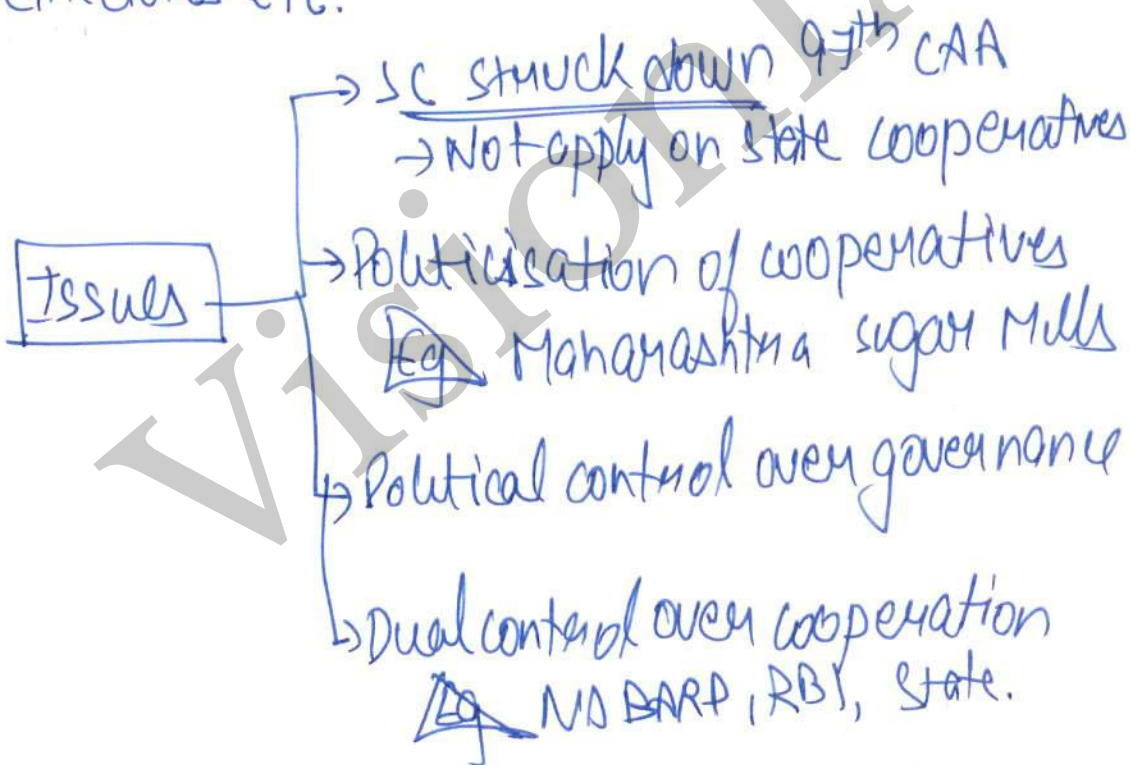 etc.
→ SC struck down 97th CAA
→ Not apply on state cooperatives
Issues
→ Politicisation of cooperatives
Eg Maharashtra sugar Mills
→ Political control over governance
→ Dual control over cooperation
Eg NABARD, RBI, State.
Vision